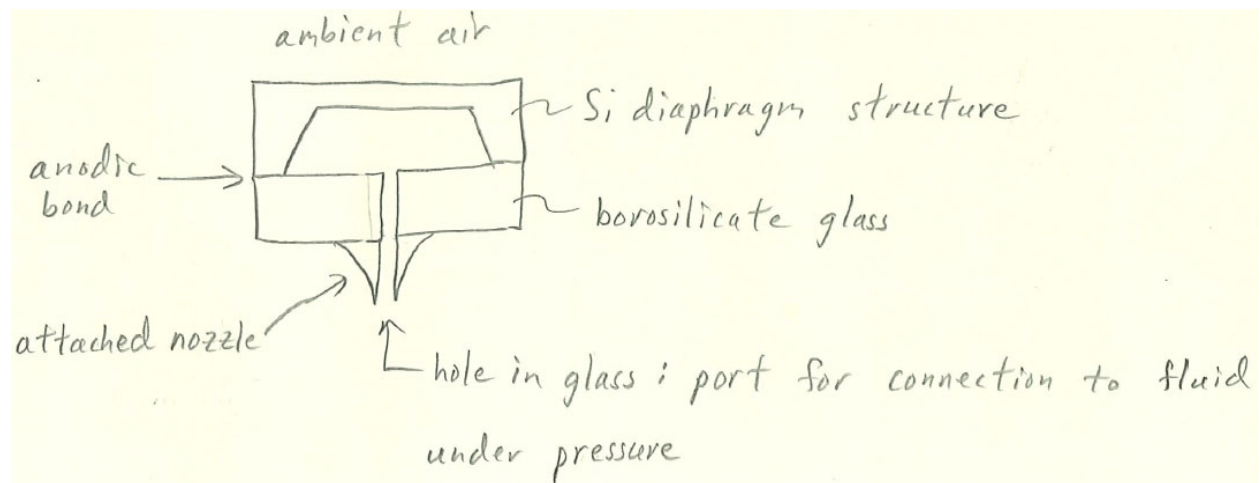 ambient air
Si diaphragm structure
anodic
bond
borosilicate glass
attached nozzle
hole in glass : port for connection to fluid
under pressure